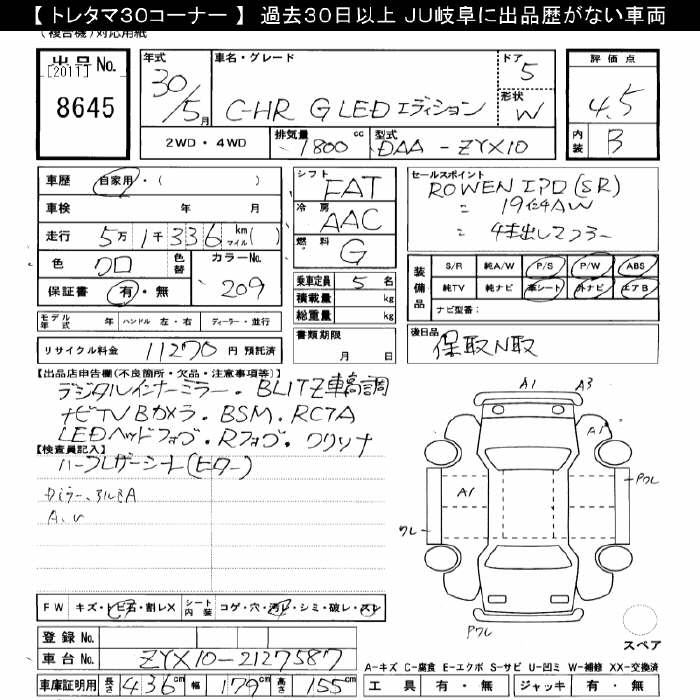 【 トレタマ30コーナー 】 過去30日以上 JU岐阜に出品歴がない車両
(複合機)対応用紙
出品No.
[2011]
8645
年式 車名・グレード ドア
30/5月 C-HR G LED エディション 5
形状
W
2WD・4WD 排気量 1800 cc 型式 DAA - ZYX10
評価点
4.5
内装 B
車歴 自家用・( )
車検 年 月
走行 5万1千336 km マイル( )
色 クロ 色替 カラーNo. 209
保証書 有・無
シフト FAT
冷房 AAC
燃料 G
乗車定員 5 名
積載量 kg
総重量 kg
書類期限
月 日
セールスポイント
ROWEN エアロ(SR)
〃 19インチAW
〃 4本出しマフラー
装備品 S/R 純A/W P/S P/W ABS
純TV 純ナビ 革シート 外ナビ エアB
ナビ型番:
後日品
保取N取
モデル年式 年 ハンドル 左・右 ディーラー・並行
リサイクル料金 11270 円 預託済
【出品店申告欄(不良箇所・欠品・注意事項等)】
デジタルインナーミラー・BLITZ車高調
ナビTVBカメラ・BSM・RCTA
LEDヘッドフォグ・Rフォグ・クリソナ
【検査員記入】
ハーフレザーシート(ヒーター)
A.U
A1 A3
A1
A1
Pワレ
ワレ
Pワレ
FW キズ・トビ石・割レX シート内装 コゲ・穴・汚レ・シミ・破レ・スレ
登録No.
車台No. ZYX10-2127587
車庫証明用 長さ 436cm 幅 179cm 高さ 155cm
スペア
A-キズ C-腐食 E-エクボ S-サビ U-凹ミ W-補修 XX-交換済
工具 有・無 ジャッキ 有・無